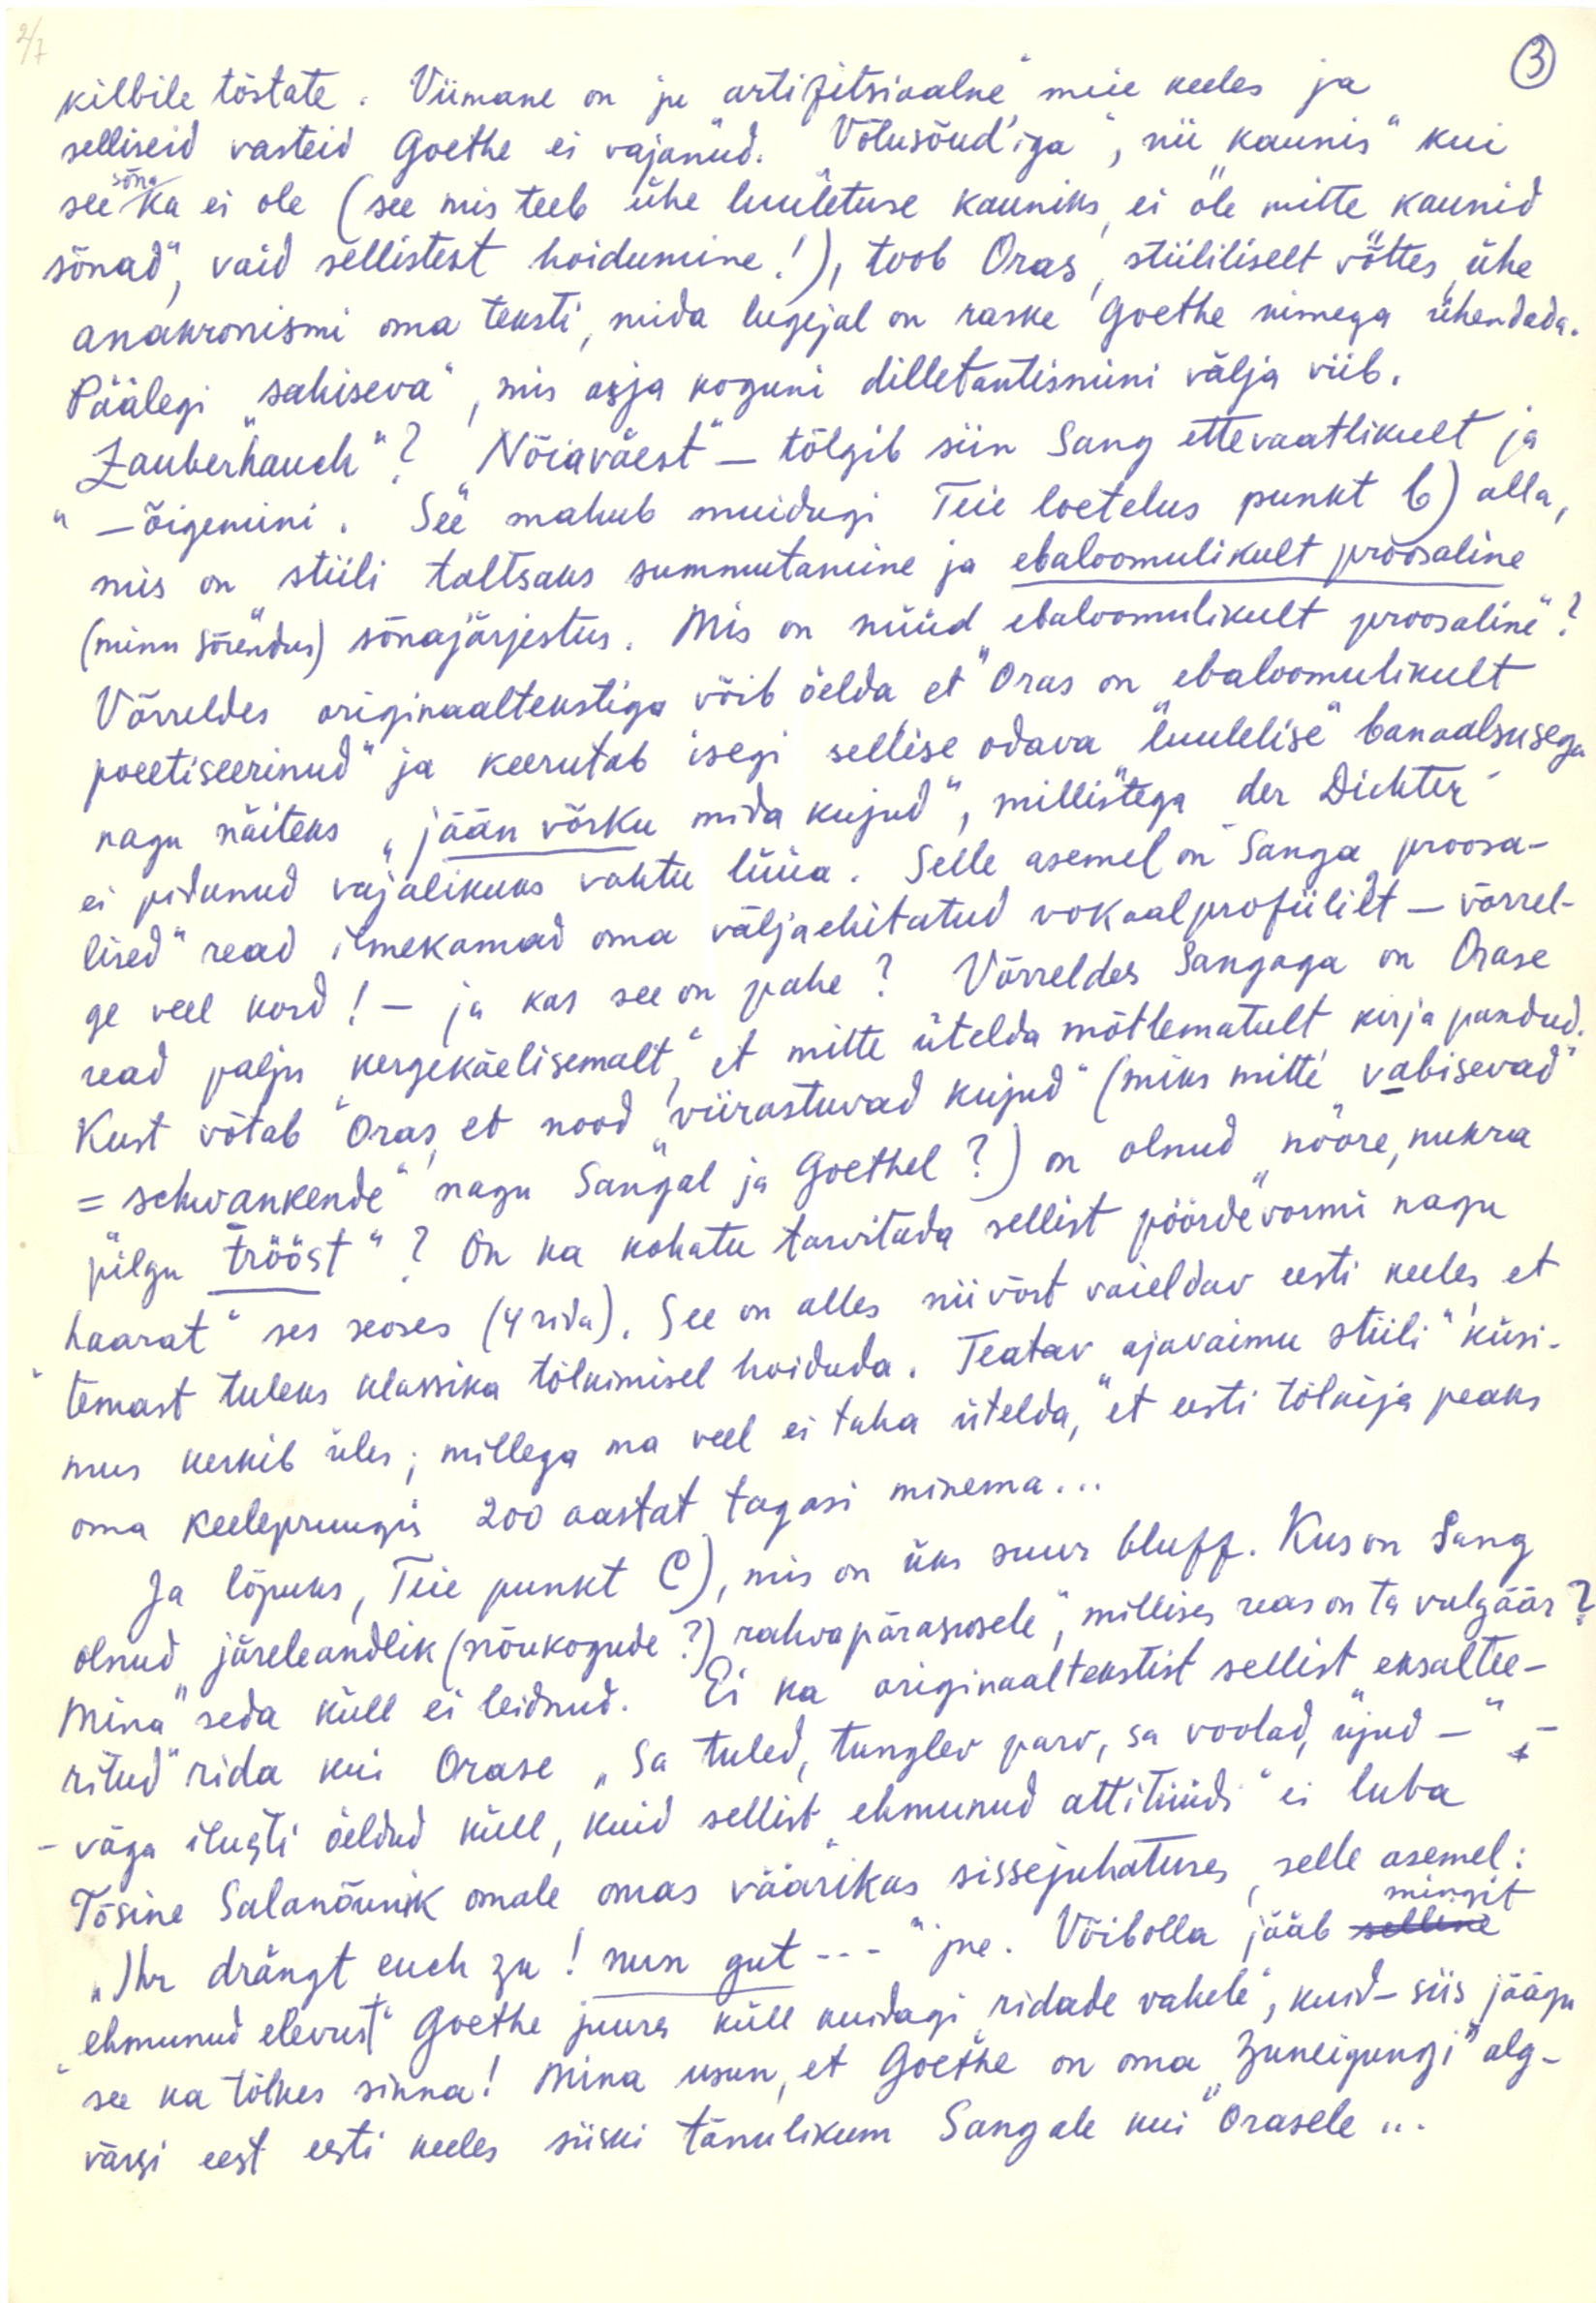 2/7
3
kilbile tõstate. Viimane on ju „artifitsiaalne" meie keeles ja
selliseid vasteid Goethe ei vajanud. „Võlusõud'iga", nii „kaunis" kui
see sõna ka ei ole (see mis teeb ühe luuletuse kauniks, ei ole mitte „kaunid
sõnad", vaid sellistest hoidumine!), toob Oras, stiililiselt võttes, ühe
anakronismi oma teksti, mida lugejal on raske Goethe nimega ühendada.
Päälegi „sahiseva", mis asja koguni dilletantismini välja viib.
„Zauberhauch"? „Nõiaväest" – tõlgib siin Sang ettevaatlikult ja
– õigemini. See mahub muidugi Teie loetelus punkt b) alla,
mis on stiili taltsaks summutamine ja ebaloomulikult proosaline
(minu sõrendus) sõnajärjestus. Mis on nüüd „ebaloomulikult proosaline"?
Võrreldes originaaltekstiga võib öelda et Oras on „ebaloomulikult
poeetiseerinud" ja keerutab isegi sellise odava „luulelise" banaalsusega
nagu näiteks „jään võrku mida kujud", millistega der Dichter
ei pidanud vajalikuks vahtu lüüa. Selle asemel on Sanga „proosa-
lised" read ilmekamad oma väljaehitatud vokaalprofiililt – võrrel-
ge veel kord! – ja kas see on paha? Võrreldes Sangaga on Orase
read palju „kergekäelisemalt", et mitte ütelda mõtlematult kirja pandud.
Kust võtab Oras, et nood „viirastuvad kujud" (miks mitte „vabisevad"
= „schwankende" nagu Sangal ja Goethel?) on olnud „noore, nukra
pilgu trööst"? On ka kohatu tarvitada sellist pöördevormi nagu
„haarat" ses seoses (4 rida). See on alles niivõrt vaieldav eesti keeles, et
temast tuleks klassika tõlkimisel hoiduda. Teatav „ajavaimu stiili" küsi-
mus kerkib üles; millega ma veel ei taha ütelda, et eesti tõlkija peaks
oma keelepruugis 200 aastat tagasi minema...
Ja lõpuks, Teie punkt C), mis on üks suur bluff. Kus on Sang
olnud järeleandlik (nõukogude?) „rahvapärasusele", millises reas on ta vulgäär?
Mina seda küll ei leidnud. Ei ka originaaltekstist sellist „eksaltee-
ritud" rida kui Orase „Sa tuled, tunglev parv, sa voolad, ujud –" –
– väga ilusti öeldud küll, kuid sellist „ehmunud attitüüdi" ei luba
Tõsine Salanõunik omale omas väärikas sissejuhatuses, selle asemel:
„Ihr drängt euch zu! nun gut - - - " jne. Võibolla jääb selline mingit
„ehmunud elevust" Goethe juures küll kuidagi „ridade vahele", kuid – siis jäägu
see ka tõlkes sinna! Mina usun, et Goethe on oma „Zuneigungi" alg-
värsi eest eesti keeles siiski tänulikum Sangale kui Orasele...